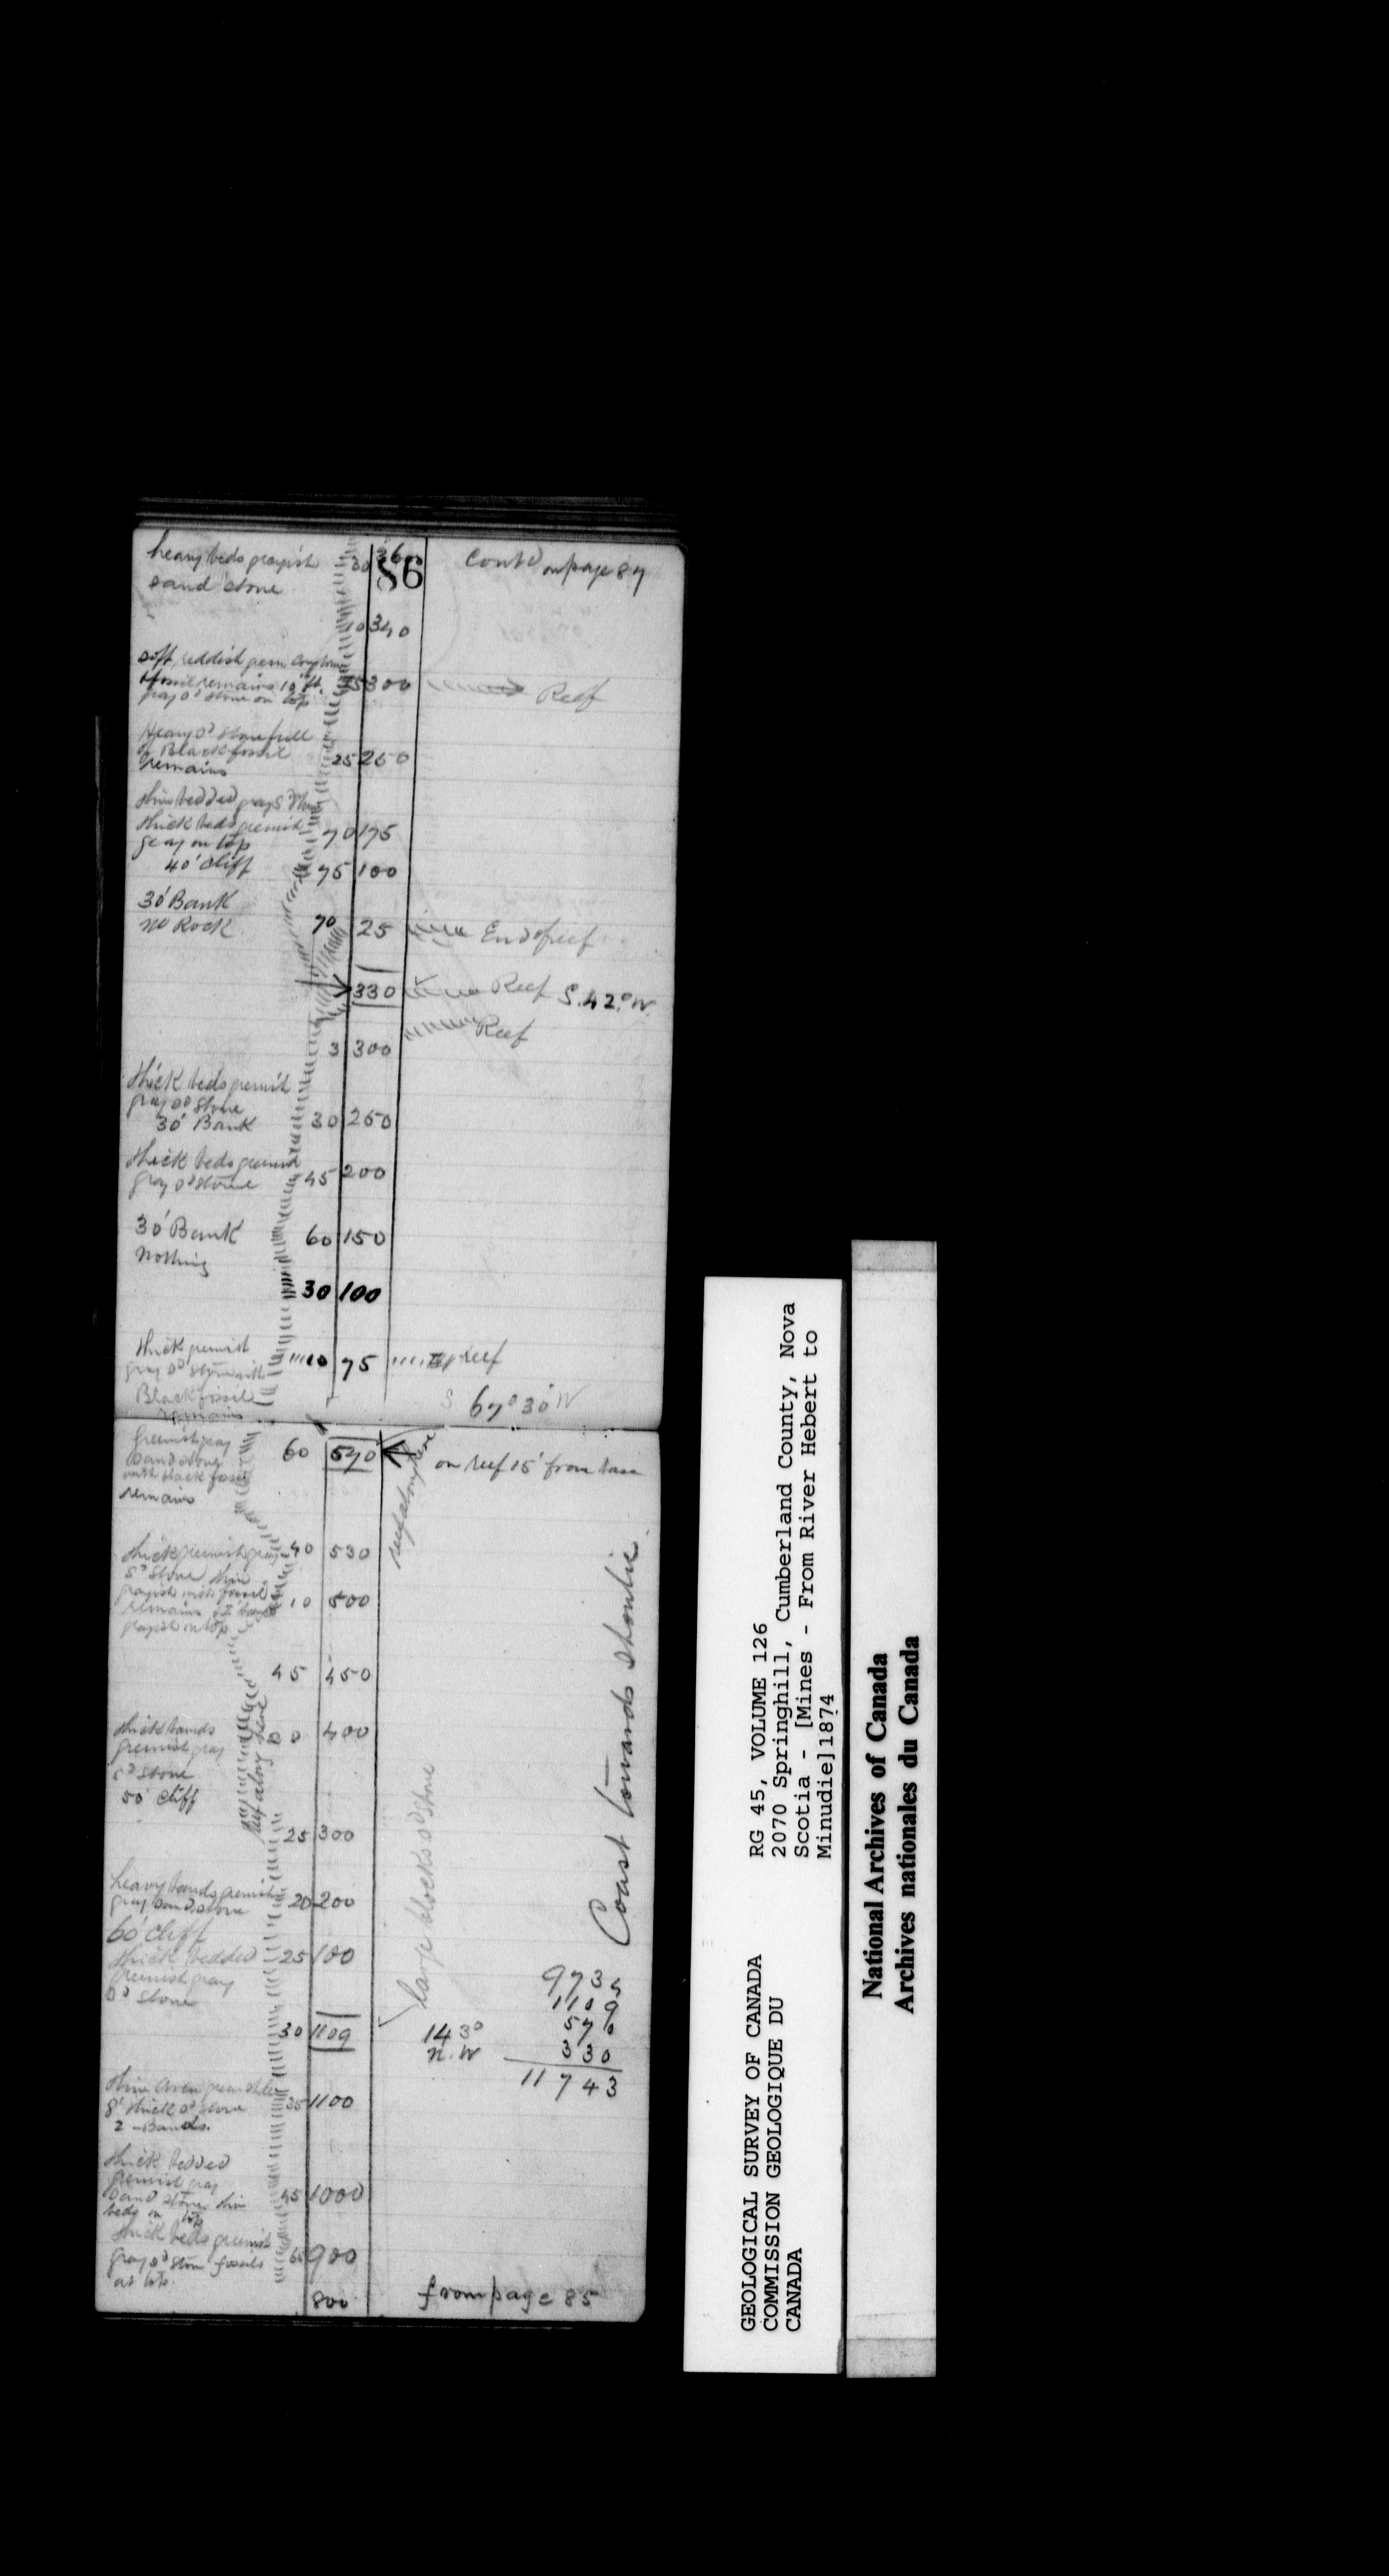 heavy beds grayish 30 360 86 Cont'd on page 87
sand stone
10 340
soft, reddish
fossil remains 10 ft. 300 Reef
gray sd stone on top
Heavy sd stone full
of Black fossil 25 250
remains
thin bedded gray
thick beds greenish 70 175
gray on top
40' Cliff 75 100
30' Bank
no Rock 70 25 End of reef
330 Reef S. 42° W.
Reef
3 300
thick beds greenish
gray sd stone
30' Bank 30 250
thick beds greenish
gray sd stone 45 200
30' Bank 60 150
nothing
30 100
thick greenish
gray sd stone with 10 75 reef
Black fossil
remains
S 67° 30' W
Greenish gray 60 570 on reef 15' from base
sand stone
with black fossil
remains
reef along here
thick greenish gray 40 530
sd stone thin
grayish with fossil 10 500
remains
grayish on top
45 450
thick bands 400
greenish gray
sd stone
50' Cliff
Reef along here
25 300
heavy bands greenish 20 200
gray sand stone
60' Cliff
thick bedded 25 100
greenish gray
sd stone
large blocks sd stone
Coast towards Shoulie
30 1109
143°
N.W
9734
1109
570
330
11743
35 1100
8' thick sd stone
2 Bands.
thick bedded
greenish gray
sand stone thin 45 1000
beds on top
thick beds greenish
gray sd stone fossils 60 900
at top.
800 from page 85
GEOLOGICAL SURVEY OF CANADA
COMMISSION GEOLOGIQUE DU
CANADA
RG 45, VOLUME 126
2070 Springhill, Cumberland County, Nova
Scotia - [Mines - From River Hebert to
Minudie]1874
National Archives of Canada
Archives nationales du Canada